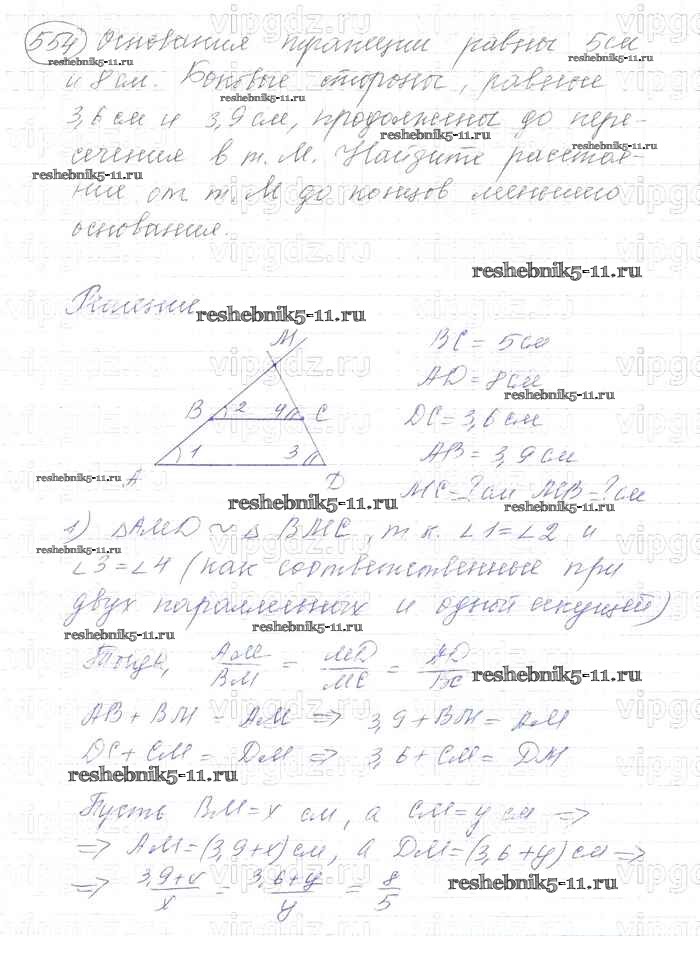 554 Основания трапеции равны 5см
и 8 см. Боковые стороны, равные
3,6 см и 3,9 см, продолжены до пере-
сечения в т. М. Найдите расстоя-
ние от т. М до концов меньшего
основания.
reshebnik5-11.ru
Решение
reshebnik5-11.ru
M
B 2 4 C
A 1 3 D
BC = 5см
AD = 8см
DC = 3,6 см
AB = 3,9 см
MC = ? см MB = ? см
reshebnik5-11.ru
1) △AMD ~ △BMC, т.к. ∠1=∠2 и
∠3=∠4 (как соответственные при
двух параллельных и одной секущей)
Тогда, AM/BM = MD/MC = AD/BC
reshebnik5-11.ru
AB + BM = AM ⇒ 3,9 + BM = AM
DC + CM = DM ⇒ 3,6 + CM = DM
reshebnik5-11.ru
Пусть BM = x см, а CM = y см ⇒
⇒ AM = (3,9+x) см, а DM = (3,6+y) см ⇒
⇒ 3,9+x/x = 3,6+y/y = 8/5
reshebnik5-11.ru